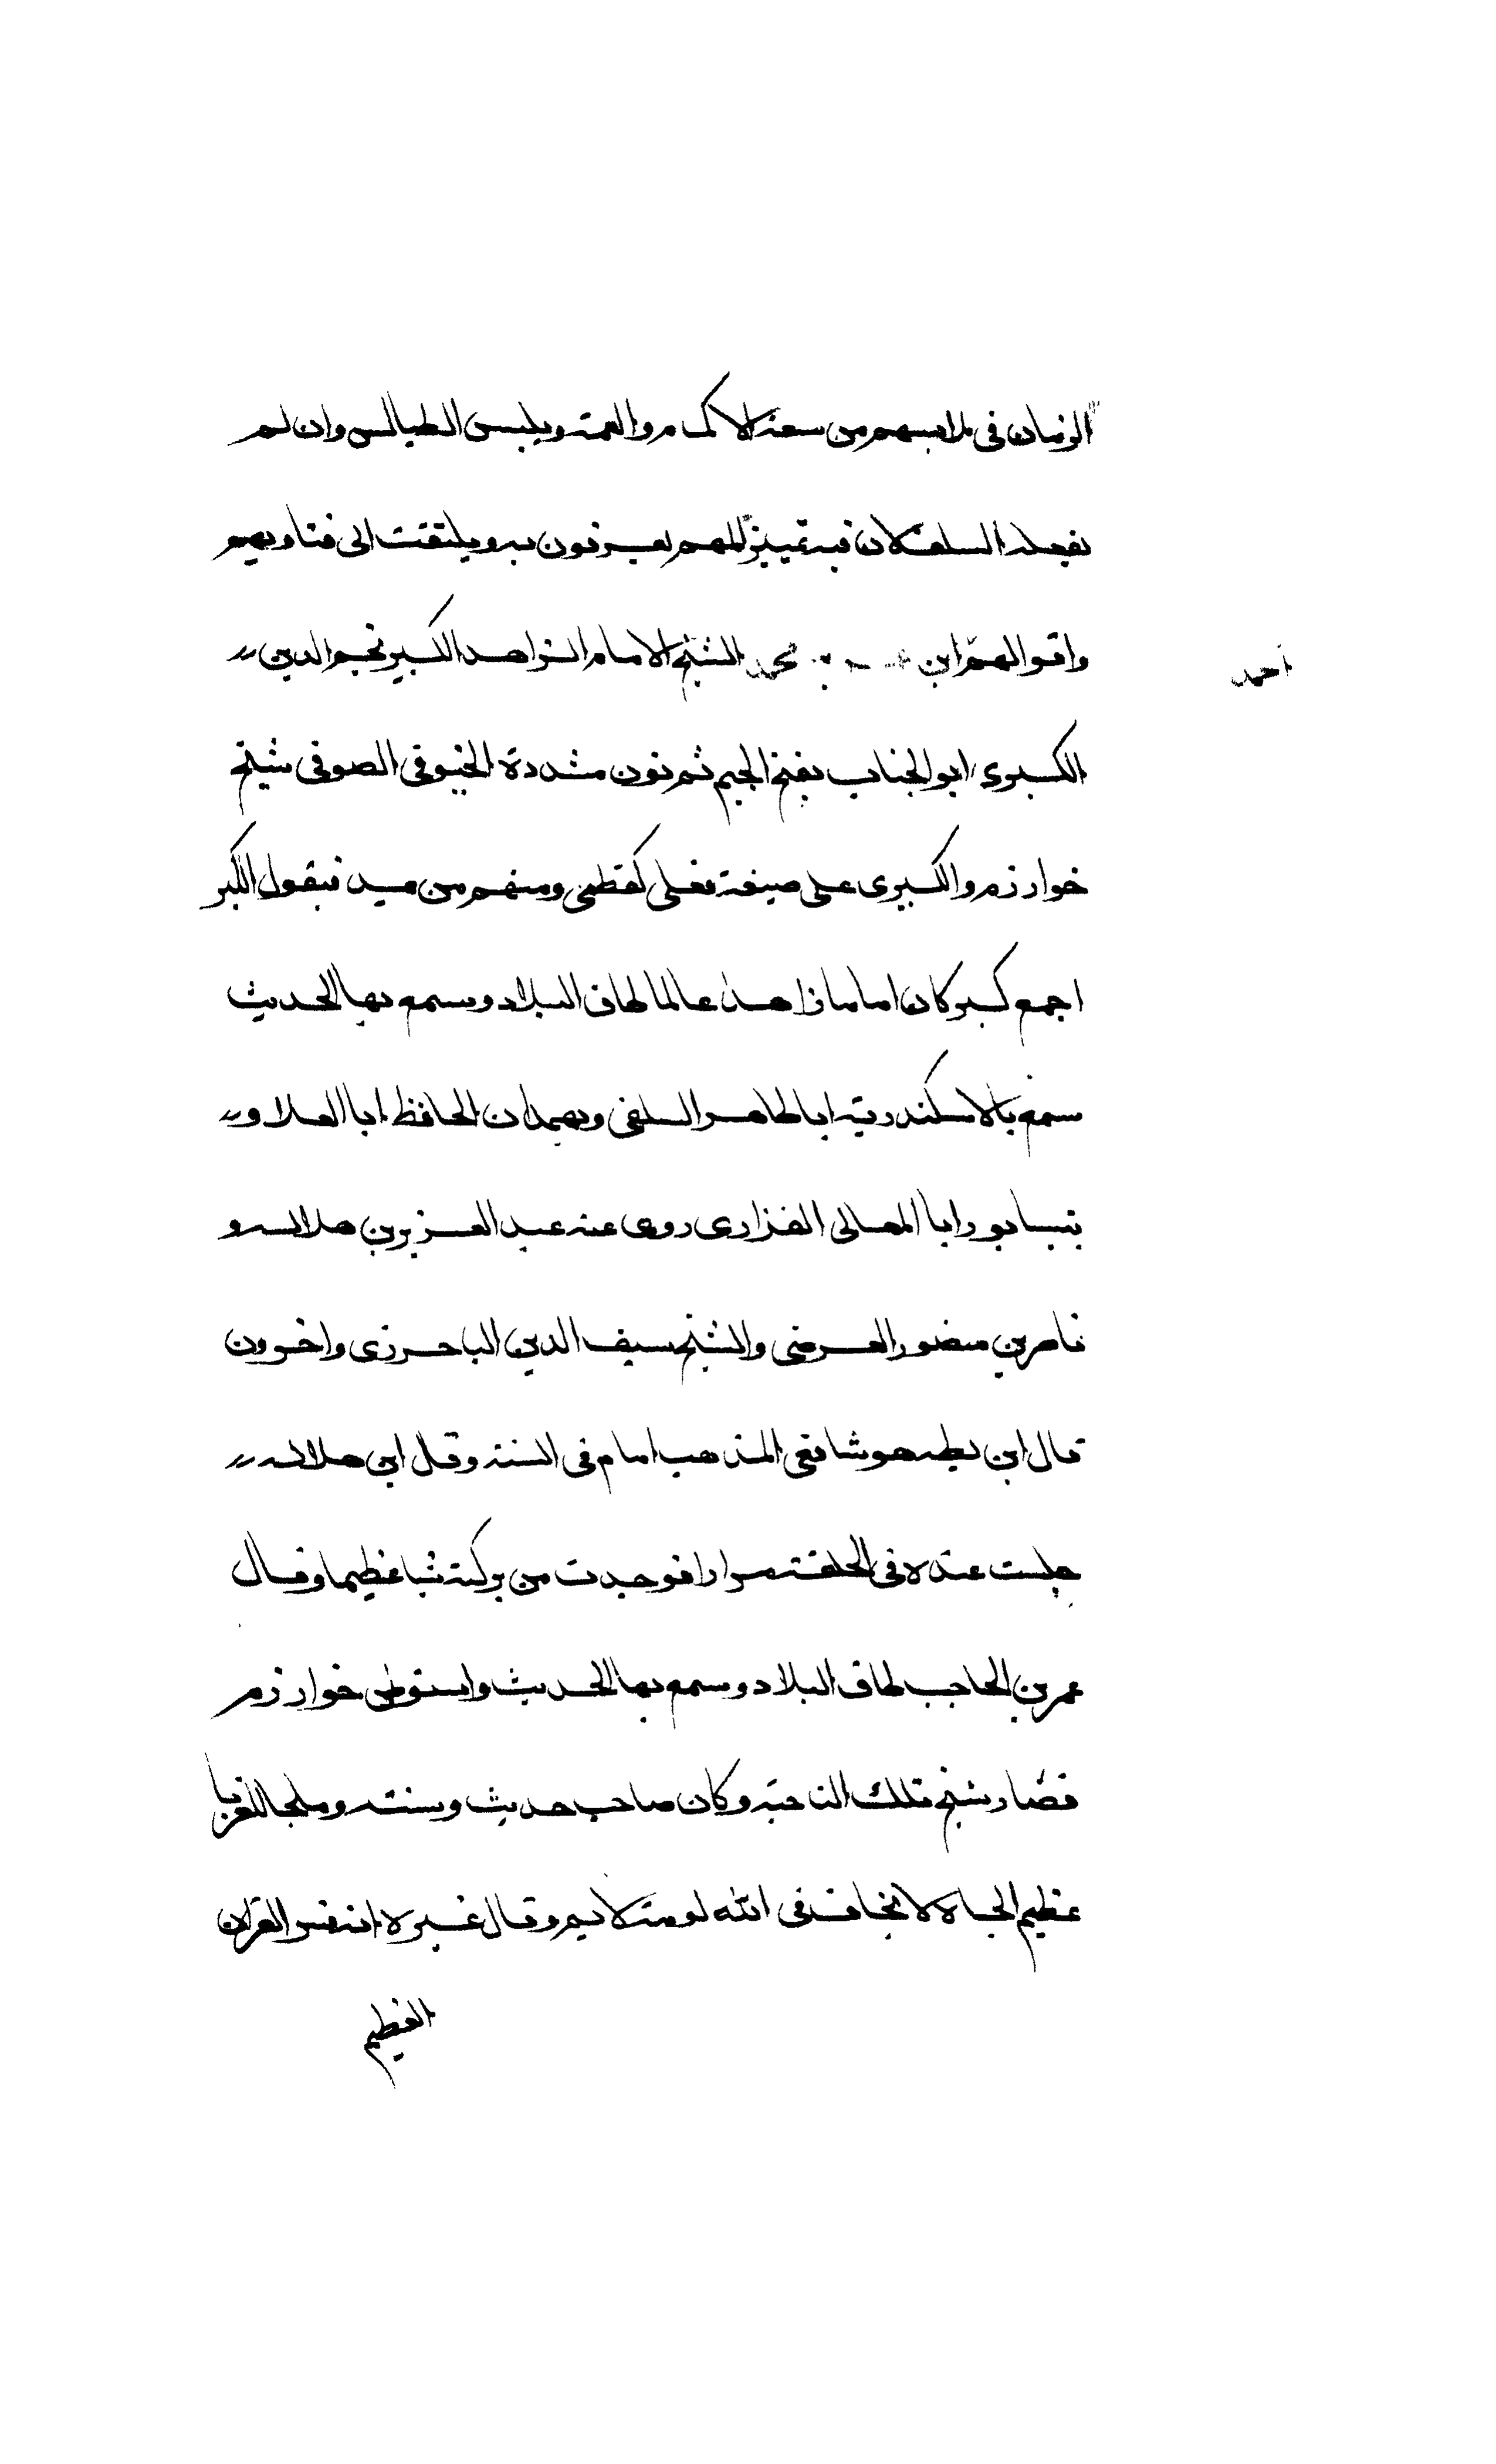 الزمان فى ملابسهم من سعة الاكمام والعمة ويلبس الطيالس وان لم
يفعله السلف لان فيه تمييز اللهم يعرفون به ويلتفت الى فتاويهم
واقوالهم ابن محمد الشيخ الامام الزاهد الكبير نجم الدين
احمد
الكبرى ابو الجناب بفتح الجيم ثم نون مشددة الخيوقى الصوفى شيخ
خوارزم والكبرى على صيغة فعلى كعظمى ومنهم من يمد فيقول الكبر
ا جمع كبير كان اماما زاهدا عالما طاف البلاد وسمع بها الحديث
سمع بالاسكندرية ابا طاهر السلفى وبهمدان الحافظ ابا العلا و
بنيسابور ابا المعالى الفزارى روى عنه عبد العزيز بن هلاله و
ناصر بن منصور العرضى والشيخ سيف الدين الباخرزى واخرون
قال ابن نقطه هو شافعى المذهب امام فى السنة وقال ابن هلاله
جلست عنده فى الحلقة مرارا فوجدت من بركته شيا عظيما وقال
عمر بن الحاجب طاف البلاد وسمع بها الحديث واستوطن خوارزم
فصار شيخ تلك الناحية وكان صاحب حديث وسنة وملجا للغربا
عظيم الجاه لا يخاف فى الله لومة لايم وقال غيره انه فسر القران
العظيم